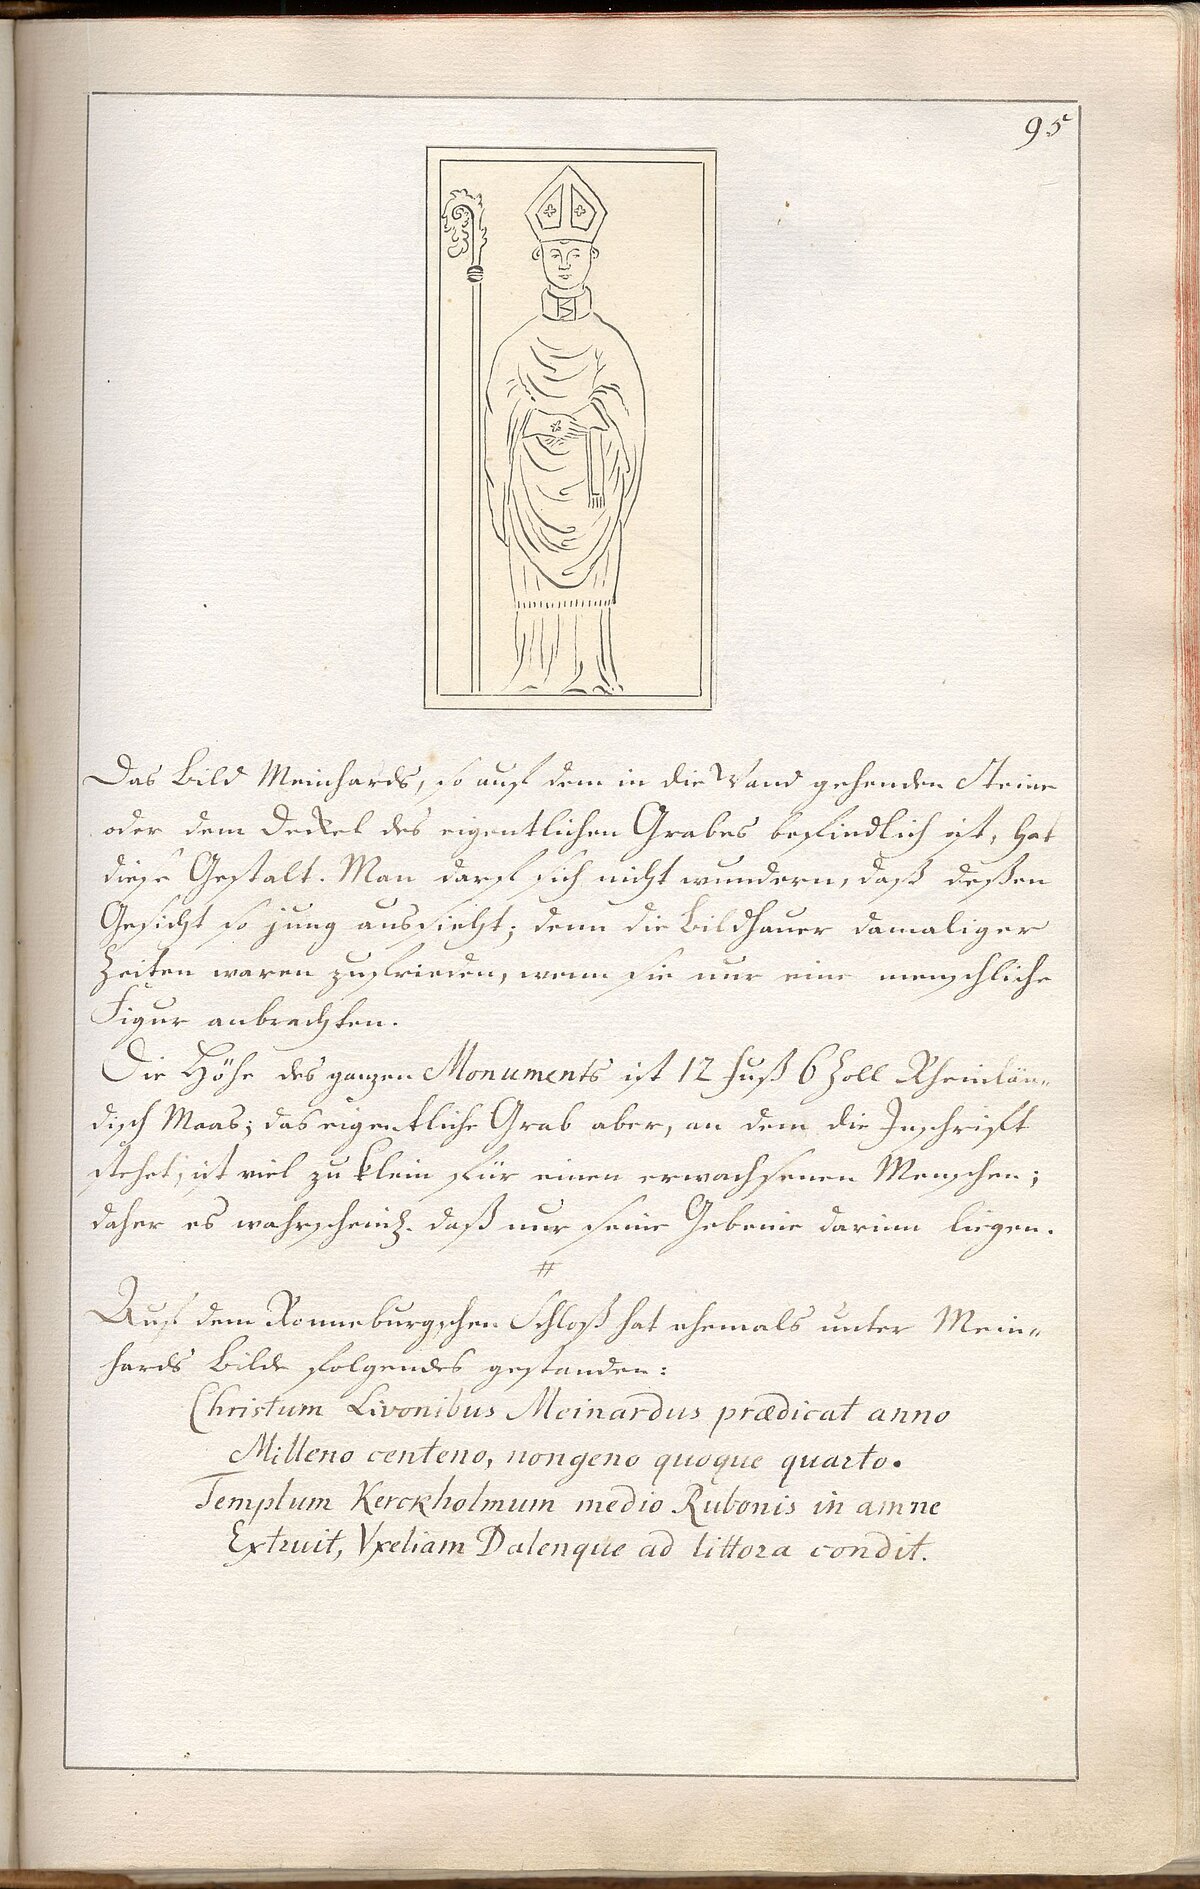 95
Das Bild Meinhards, so auf dem in die Wand gehenden Steine
oder dem Deckel des eigentlichen Grabes befindlich ist, hat
diese Gestalt. Man darf sich nicht wundern, daß deßen
Gesicht so jung aussieht; denn die Bildhauer damaliger
Zeiten waren zufrieden, wenn sie nur eine menschliche
Figur anbrachten.
Die Höhe des ganzen Monuments ist 12 Fuß 6 Zoll Rheinlän„
disch Maas; das eigentliche Grab aber, an dem die Inschrift
stehet, ist viel zu klein für einen erwachsenen Menschen;
daher es wahrscheinl. daß nur seine Gebeine darinn liegen.
#
Auf dem Ronneburgschen Schloß hat ehemals unter Mein„
hards Bilde folgendes gestanden:
Christum Livonibus Meinardus prædicat anno
Milleno centeno, nongeno quoque quarto.
Templum Kerckholmum medio Rubonis in amne
Extruit, Vxeliam Dalenque ad littora condit.